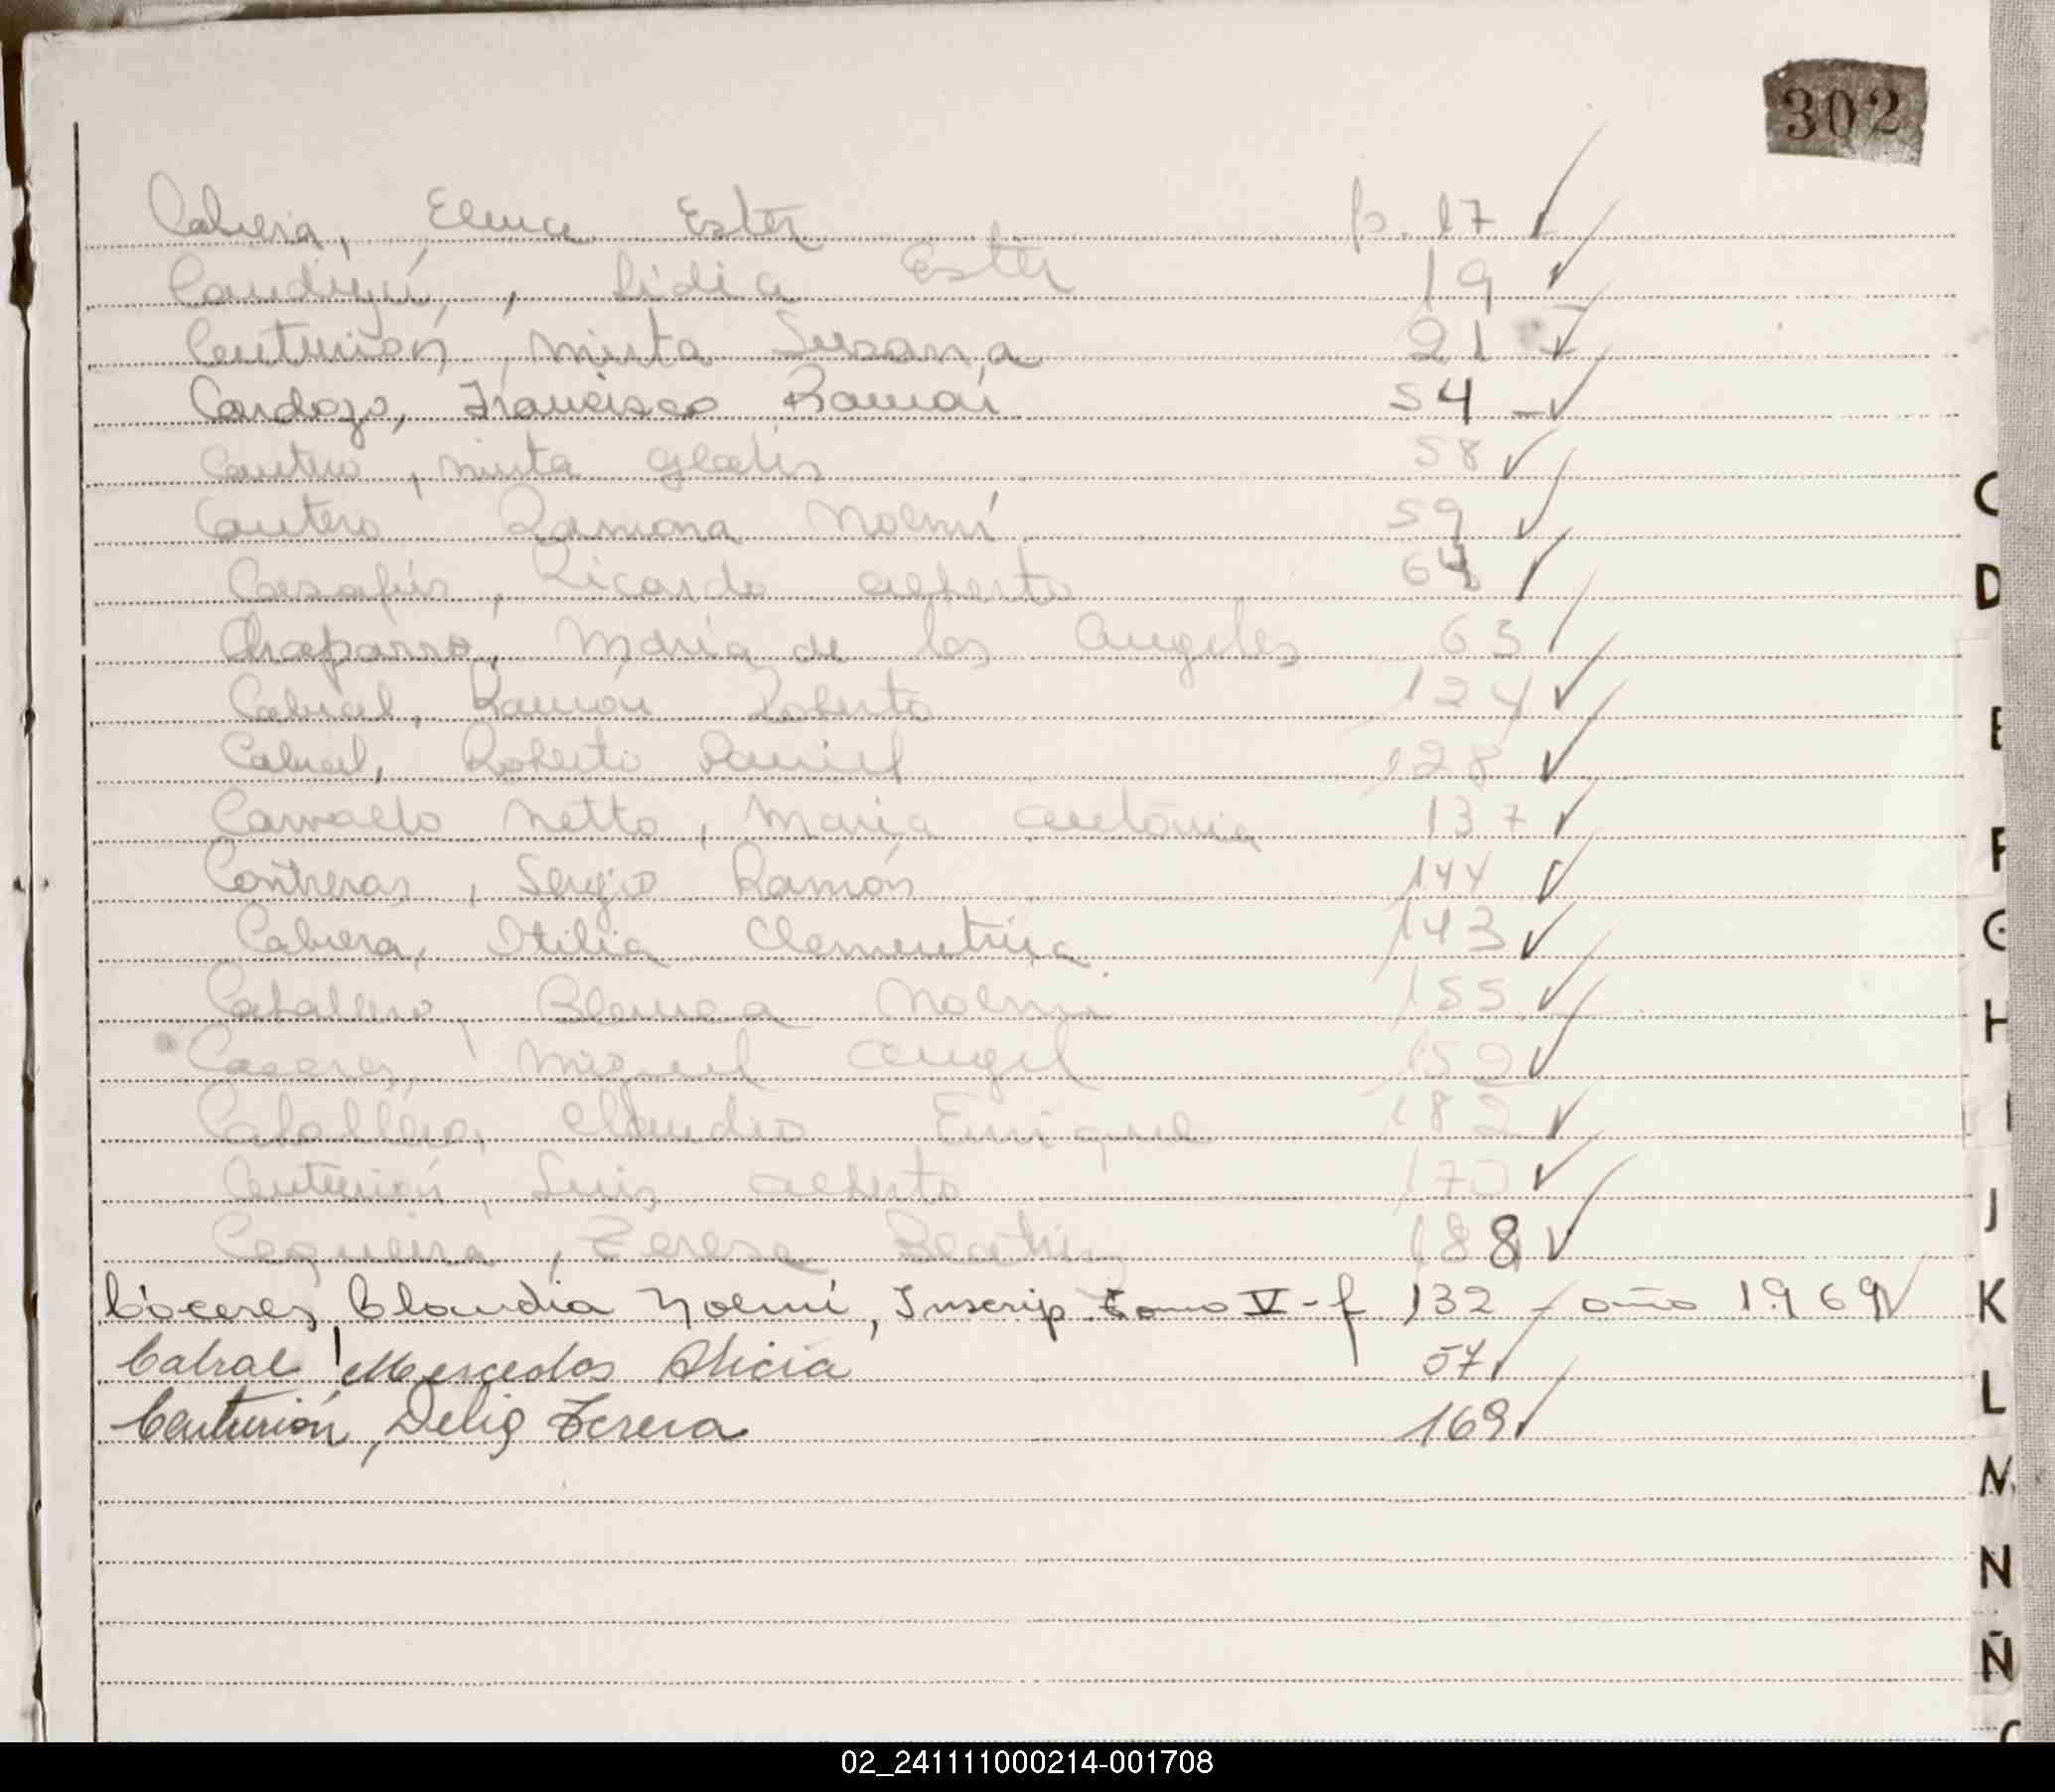 302
Cabrera, Elena Ester p. 17
Lidia Ester 19
Centurión, Mirta Susana 21
Cardozo, Francisco Ramón 54
Cantero, Mirta Gladis 58
Cantero Ramona Noemí 59
Ricardo Alberto 64
Chaparro, María de los Angeles 63
Cabral, Ramón Roberto 124
Cabral, Roberto Daniel 128
Carvallo Netto, María Antonia 137
Contreras, Sergio Ramón 144
Cabrera, Otilia Clementina 143
Caballero, Blanca Noemi 155
Caceres, Miguel Angel 152
Caballero, Claudio Enrique 182
Centurión, Luis Alberto 170
Cequeira, Teresa Beatriz 188
Cáceres, Claudia Noemí, Inscrip. Tomo V - f 132 - año 1969
Cabral, Mercedes Alicia 57
Centurión, Delia Teresa 169
C
D
E
F
G
H
I
J
K
L
M
N
Ñ
02_241111000214-001708